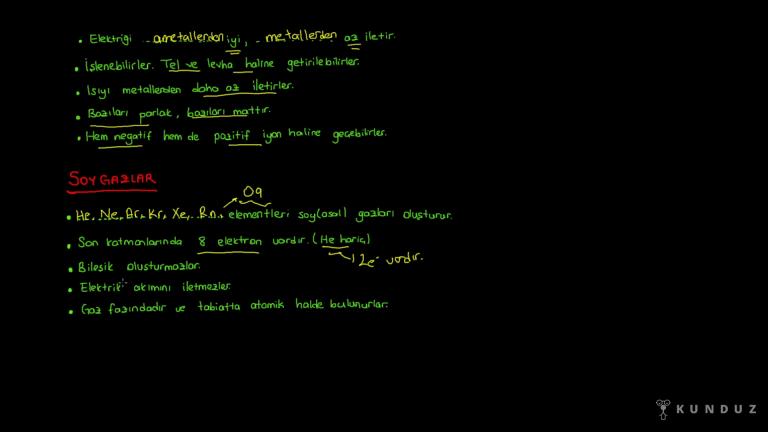 • Elektriği ametallerden iyi, metallerden az iletir.
• İşlenebilirler. Tel ve levha haline getirilebilirler.
• Isıyı metallerden daha az iletirler.
• Bazıları parlak, bazıları mattır.
• Hem negatif hem de pozitif iyon haline geçebilirler.
SOYGAZLAR
Og
• He, Ne, Ar, Kr, Xe, Rn, elementleri soy(asal) gazları oluşturur.
• Son katmanlarında 8 elektron vardır. (He hariç)
2e⁻ vardır.
• Bileşik oluşturmazlar.
• Elektrik akımını iletmezler.
• Gaz fazındadır ve tabiatta atomik halde bulunurlar.
KUNDUZ